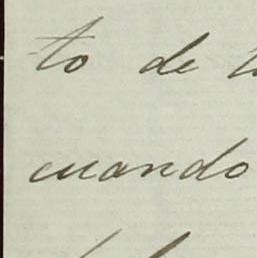 to de
cuando